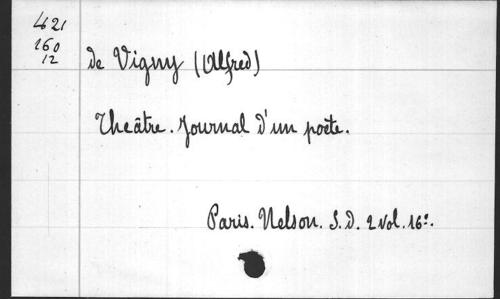 421
160
12
de Vigny (Alfred)
Theâtre. Journal d'un poète.
Paris. Nelson. S. D. 2 vol. 16º.